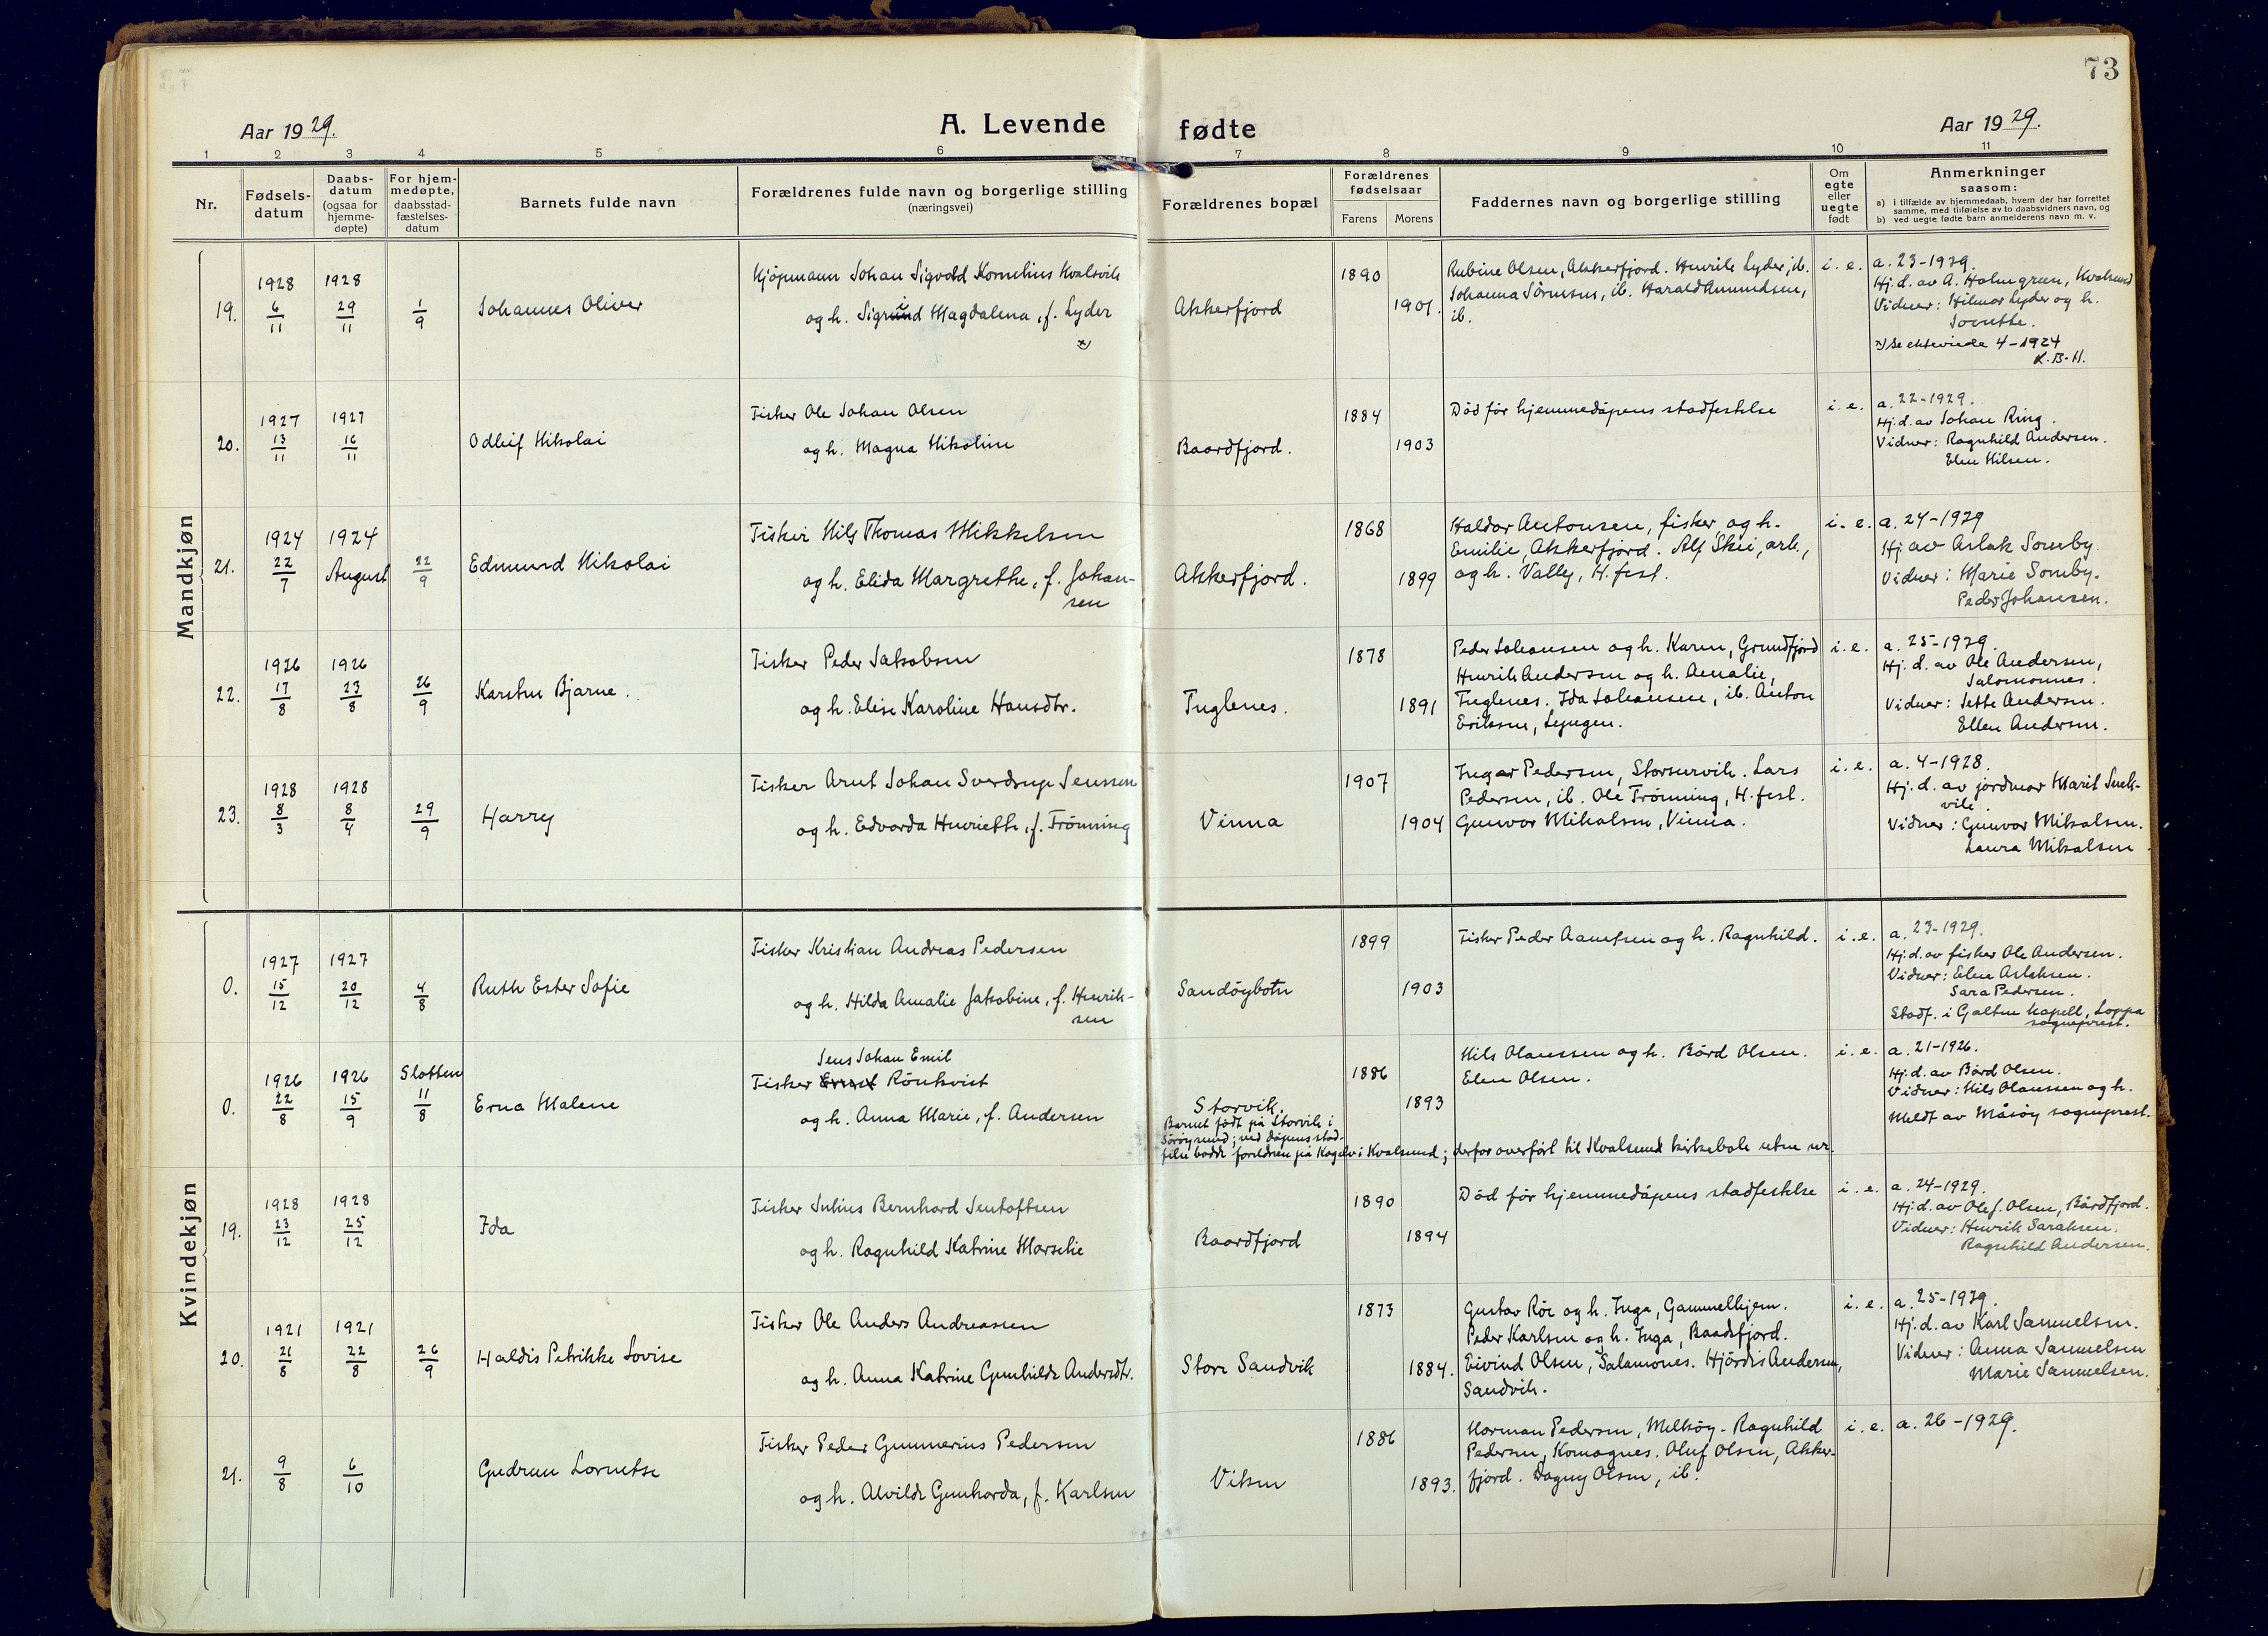 73
Aar 1929.
A. Levende fødte
Aar 1929.
1 2 3 4 5 6 7 8 9 10 11
Nr.
Fødsels-
datum
Daabs-
datum
(ogsaa for
hjemme-
døpte)
For hjem-
medøpte,
daabsstad-
fæstelses-
datum
Barnets fulde navn
Forældrenes fulde navn og borgerlige stilling
(næringsvei)
Forældrenes bopæl
Forældrenes
fødselsaar
Farens Morens
Faddernes navn og borgerlige stilling
Om
egte
eller
uegte
født
Anmerkninger
saasom:
a) i tilfælde av hjemmedaab, hvem der har forrettet
samme, med tilføielse av to daabsvidners navn, og
b) ved uegte fødte barn anmelderens navn m. v.
Mandkjøn
19.
1928
6/11
1928
29/11
1/9
Johannes Oliver
Kjøpmann Johan Sigvald Kornelius Kvalsvik
og h. Sigrid Magdalena, f. Lyder
x)
Akkerfjord
1890
1901.
Rubine Olsen, Akkerfjord. Henrik Lyder, ib.
Johanna Sørensen, ib. Harald Amundsen,
ib.
i. e.
a. 23-1929.
Hj. d. av A. Holmgren, Kvalsund
Vidner: Hilmar Lyder og h.
x) Se ekteviede 4-1924
K.B-H.
20.
1927
13/11
1927
16/11
Odleif Nikolai
Fisker Ole Johan Olsen
og h. Magna Nikoline
Baardfjord.
1884
1903
Död för hjemmedåpens stadfestelse
i. e.
a. 22-1929.
Hj. d. av Johan Ring.
Vidner: Ragnhild Andersen.
Elen Nilsen.
21.
1924
22/7
1924
August
22/9
Edmund Nikolai
Fisker Nils Thomas Mikkelsen
og h. Elida Margrethe, f. Johan-
sen
Akkerfjord.
1868
1899
Haldor Antonsen, fisker og h.
Emilie, Akkerfjord. Alf Skii, arb.,
og h. Vally, H.fest.
i. e.
a. 24-1929
Hj av Aslak Somby.
Vidner: Marie Somby.
Peder Johansen.
22.
1926
17/8
1926
23/8
26/9
Karsten Bjarne.
Fisker Peder Jakobsen
og h. Elise Karoline Hansdtr.
Fuglenes.
1878
1891
Peder Johansen og h. Karen, Grundfjord
Henrik Andersen og h. Amalie,
Fuglenes. Ida Johansen, ib. Anton
Eriksen, Lyngen.
i. e.
a. 25-1929.
Hj. d. av Ole Andersen,
Salomonnes.
Vidner: Jette Andersen.
Ellen Andersen.
23.
1928
8/3
1928
8/4
29/9
Harry
Fisker Arnt Johan Sverdrup Jenssen
og h. Edvarda Henriette, f. Trönning
Vinna
1907
1904
Inger Pedersen, Storsurvik. Lars
Pedersen, ib. Ole Trönning, H.fest.
Gunvor Mikalsen, Vinna.
i. e.
a. 4-1928.
Hj. d. av jordmor Marit Smek-
vik.
Vidner: Gunvor Mikalsen.
Laura Mikalsen
Kvindekjøn
0.
1927
15/12
1927
20/12
4/8
Ruth Ester Sofie
Fisker Kristian Andreas Pedersen
og h. Hilda Amalie Jakobine, f. Henrik-
sen
Sandöybotn
1899
1903
Fisker Peder Aanetsen og h. Ragnhild.
i. e.
a. 23-1929.
Hj. d. av fisker Ole Andersen.
Vidner: Elen Aslaksen.
Sara Pedersen.
Stadf. i Galten kapell, Loppa
sogneprest.
0.
1926
22/8
1926
15/9
Slotten
11/8
Erna Malene
Jens Johan Emil
Fisker Ernst Rönkvist
og h. Anna Marie, f. Andersen
Storvik.
Barnet født på Storvik i
Sörøysund; ved dåpens stad-
felse bodde foreldren på Kogelv i Kvalsund; derfor overført til Kvalsund kirkebok uten nr.
1886
1893
Nils Olaussen og h. Bård Olsen.
Elen Olsen.
i. e.
a. 21-1926.
Hj. d. av Bård Olsen.
Vidner: Nils Olaussen og h.
Meldt av Måsöy sogneprest.
19.
1928
23/12
1928
25/12
Ida
Fisker Julius Bernhard Jentoftsen
og h. Ragnhild Katrine Marselie
Baardfjord
1890
1894
Död för hjemmedåpens stadfestelse
i. e.
a. 24-1929.
Hj. d. av Ole J. Olsen, Bårdfjord.
Vidner: Henrik Saraksen.
Ragnhild Andersen.
20.
1921
21/8
1921
22/8
26/9
Haldis Petrikke Lovise
Fisker Ole Anders Andreassen
og h. Anna Katrine Gunhilde Andersdtr.
Store Sandvik
1873
1884.
Gustav Röe og h. Inga, Gammelhjem.
Peder Karlsen og h. Inga, Baadsfjord.
Eivind Olsen, Salamones. Hjördis Andersen,
Sandvik.
i. e.
a. 25-1929.
Hj. d. av Karl Samuelsen.
Vidner: Anna Samuelsen
Marie Samuelsen.
21.
9/8
6/10
Gudrun Lornetse
Fisker Peder Gunnerius Pedersen
og h. Alvilde Gunharda, f. Karlsen
Viken
1886
1893.
Norman Pedersen, Melkøy. Ragnhild
Pedersen, Komagnes. Oluf Olsen, Akker-
fjord. Dagny Olsen, ib.
i. e.
a. 26-1929.